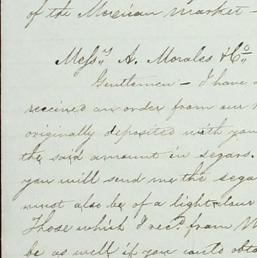 of the Mexican market –
Messrs A. Morales & Co
Gentlemen – I have
received an order from our
originally deposited with you
the said amount in segars.
you will send me the segar
must also be of a light
Those which I recd. from
be as well if you